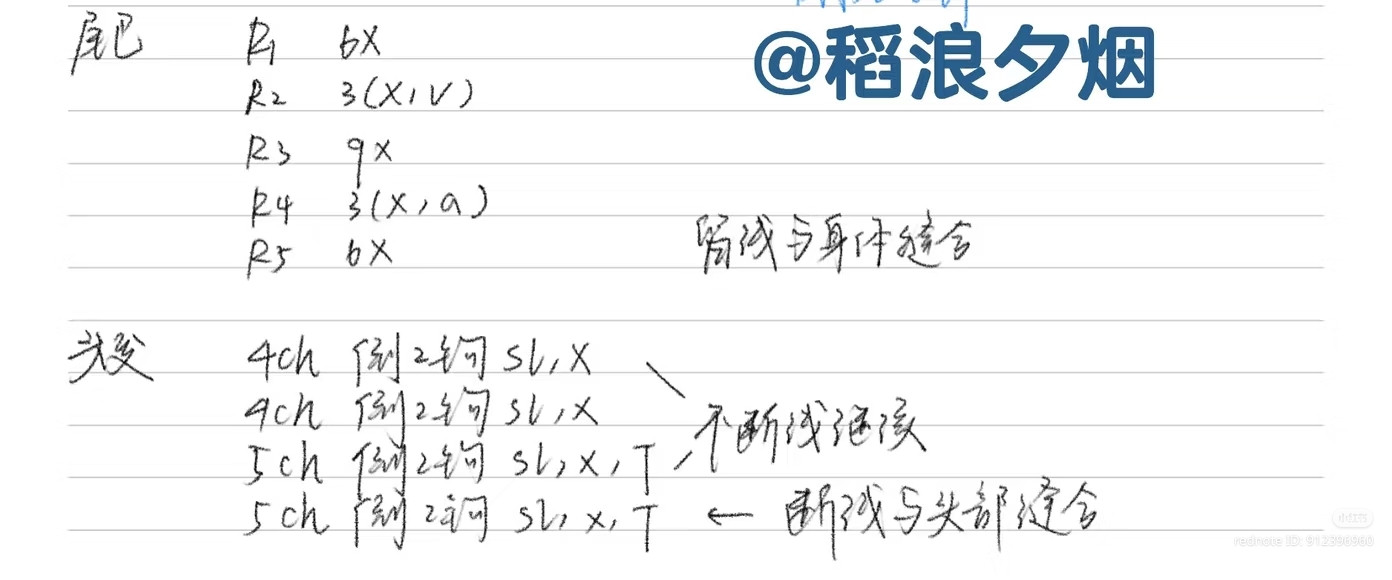 @稻浪夕烟
尾巴 R1 6X
R2 3(X,V)
R3 9X
R4 3(X,a)
R5 6X 留线与身体缝合
头发 4ch 倒2钩 sl,X
4ch 倒2钩 sl,X
不断线继续
5ch 倒2钩 sl,X,T
5ch 倒2钩 sl,X,T ← 断线与头部缝合
小红书
rednote ID: 912396960